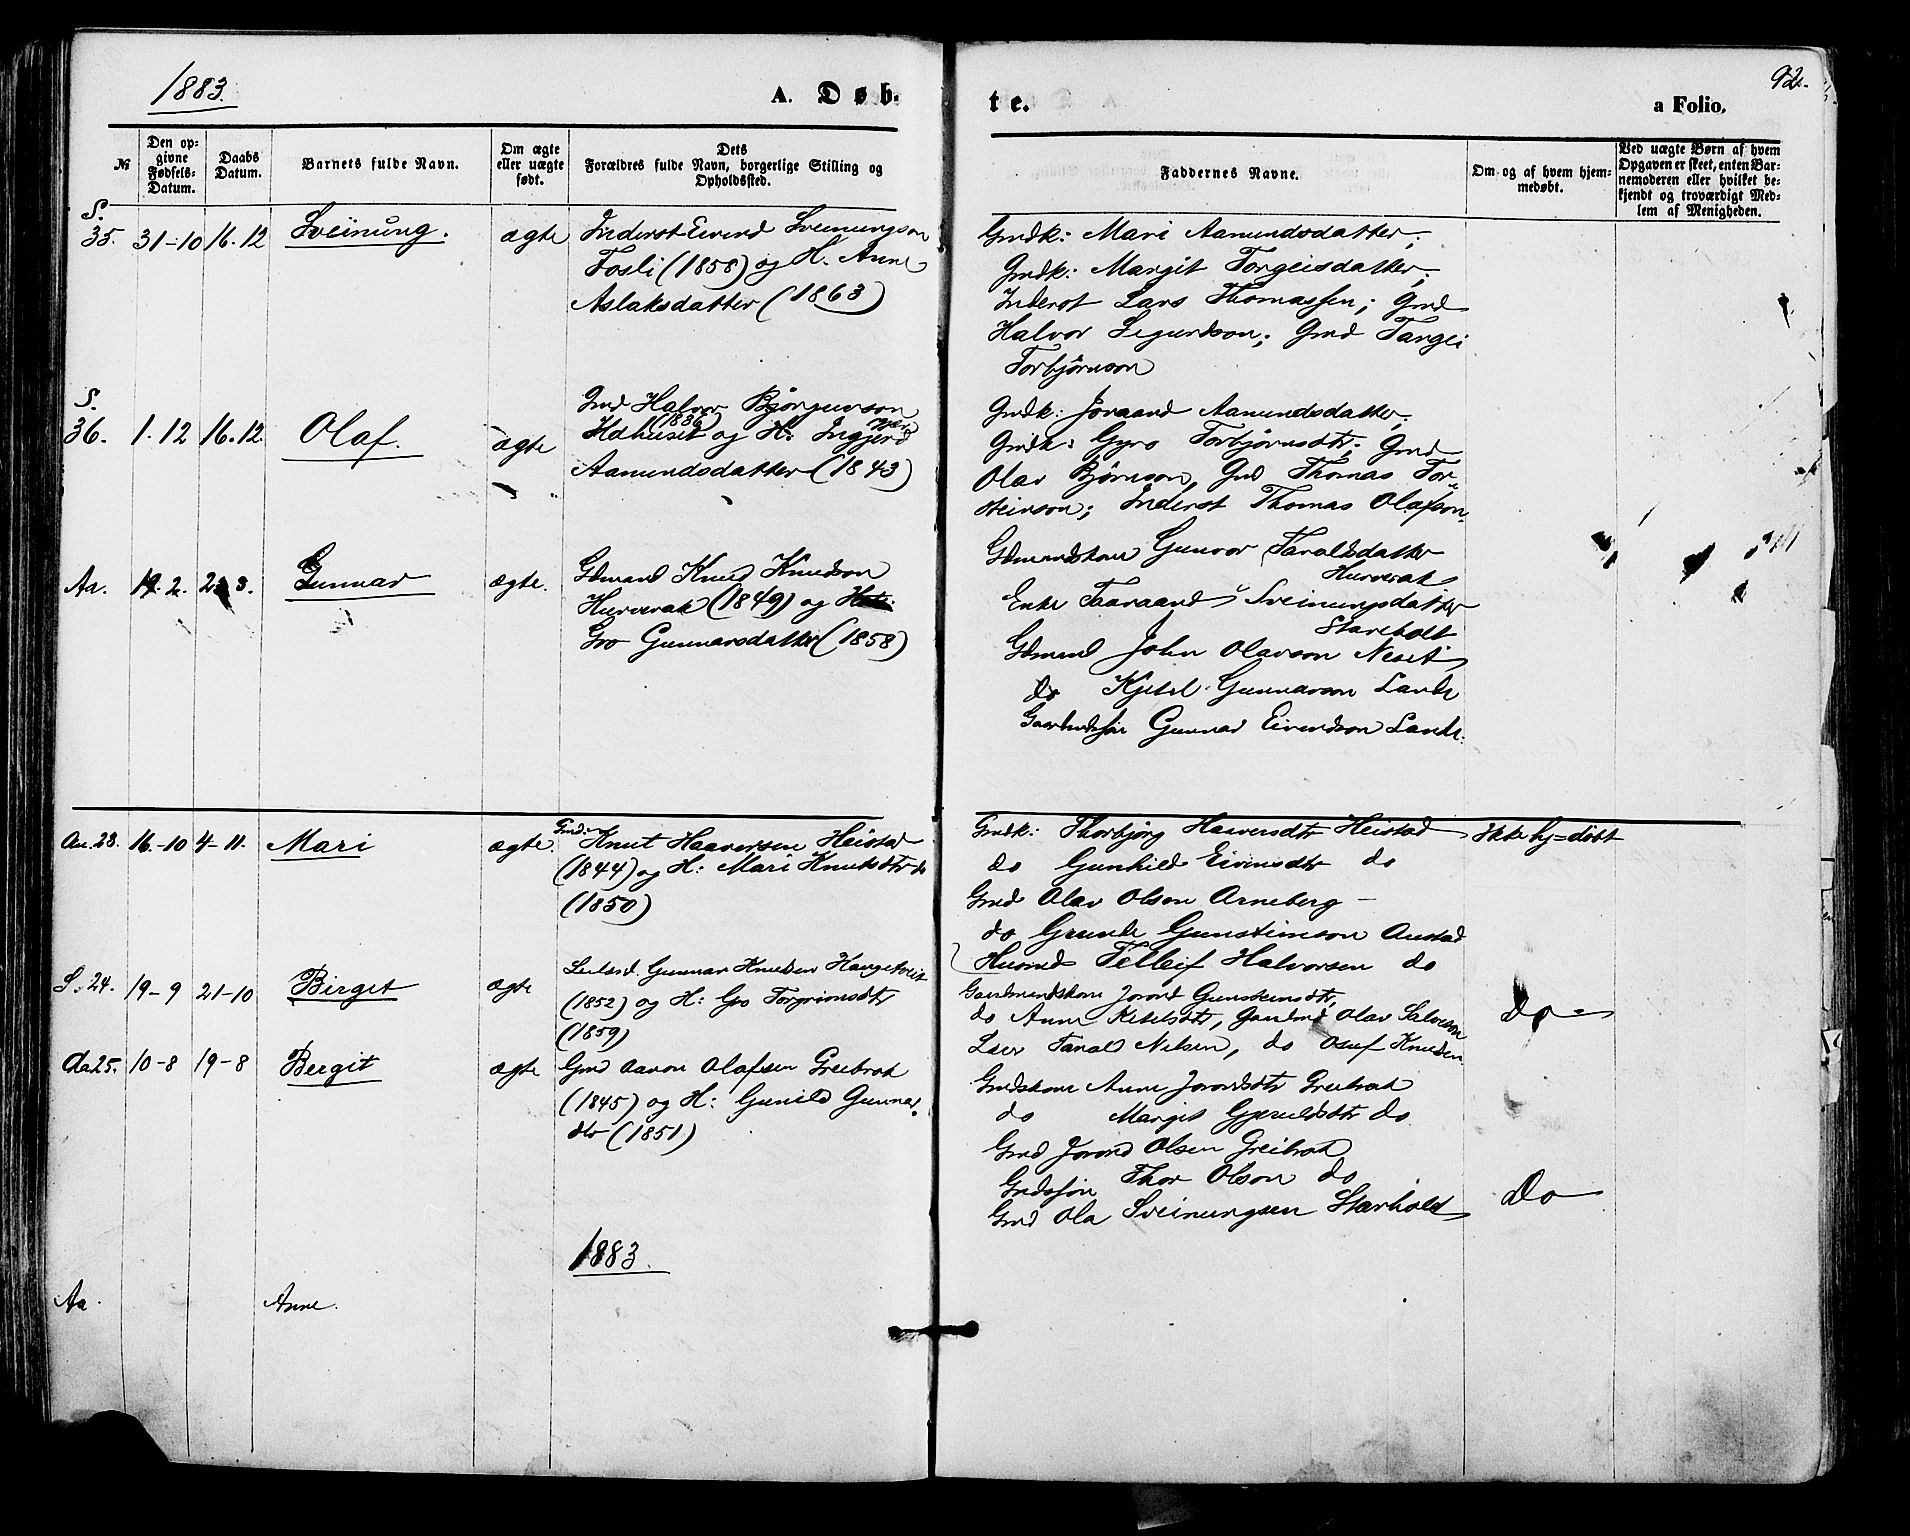 1883.
A. Døb-
te.
92.
a Folio.
№
Den op-
givne
Fødsels-
Datum.
Daabs
Datum.
Barnets fulde Navn.
Om ægte
eller uægte
født.
Dets
Forældres fulde Navn, borgerlige Stilling og
Opholdssted.
Faddernes Navne.
Om og af hvem hjem-
medøbt.
Ved uægte Børn af hvem
Opgaven er skeet, enten Bar-
nemoderen eller hvilket be-
kjendt og troværdigt Med-
lem af Menigheden.
S.
35. 31-10 16.12 Sveinung. ægte Inderst Eivind Sveinungson
Fosli (1858) og H. Anne
Aslaksdatter (1863)
Gmdk: Mari Aamundsdatter;
Gmdk: Margit Torgeisdatter;
Inderst Lars Thomassen; Gmd
Halvor Sigurdson; Gmd Targei
Torbjørnson
S.
36. 1.12 16.12 Olaf. ægte Gmd Halvor Bjørgulvson
(1836)
Hóhuset og H. Ingjerd
Aamundsdatter (1843)
Gmdk: Joraand Aamundsdatter,
Gmdk: Gyro Torbjørnsdtr; Gmd
Olav Bjørnson, Gmd Thomas Tor-
steinson; Inderst Thomas Olafson.
Aa. 19.2. 3. Gunnar ægte. Gdmand Knud Knudson
Hurverak (1849) og
Gro Gunnarsdatter (1858)
Gdmandskone Gunvor Taraldsdatter
Hurverak
Enke Taaraand Sveinungsdatter
Stareholt
Gdmand John Olavson Neset
do Kjetil Gunnarson Lande
Gaardmdsøn Gunnar Eivindson Lande.
Aa. 23. 16-10 4-11. Mari ægte. Gmd: Knut Haaversen Heistad
(1844) og H: Mari Knutsdtr do
(1850)
Gmdk: Thorbjörg Haversdtr Heistad Ikke hj=døbt
do Gunhild Eivinsdtr do
Gmd Olav Olson Arneberg
do Grunde Gunsteinson Austad
Husmd Tellef Halvorsen do
S. 24. 19-9 21-10 Birget ægte Gunnar Knudsen Haugetveit
(1852) og H: Gro Torgrimsdtr
(1859)
Gaardmandskone Jorond Gunsteinsdtr,
do Anne Ketelsdtr, Gaardmd Olav Salveson do
Tarald Nilsen, do Osuf Knudsen
Aa 25. 10-8 19-8 Bergit ægte Gmd Aavon Olafsen Greibrok
(1845) og H: Gunild Gunnar
dtr (1851)
Gmdskone Anne Jorondsdtr Greibrok
do Margit Gjeruldsdtr do
Gmd Jorond Olsen Greibrok
Gmdssøn Thor Olson do Do
Gmd Ola Sveinungsen Starholt
1883.
Aa. Anne.